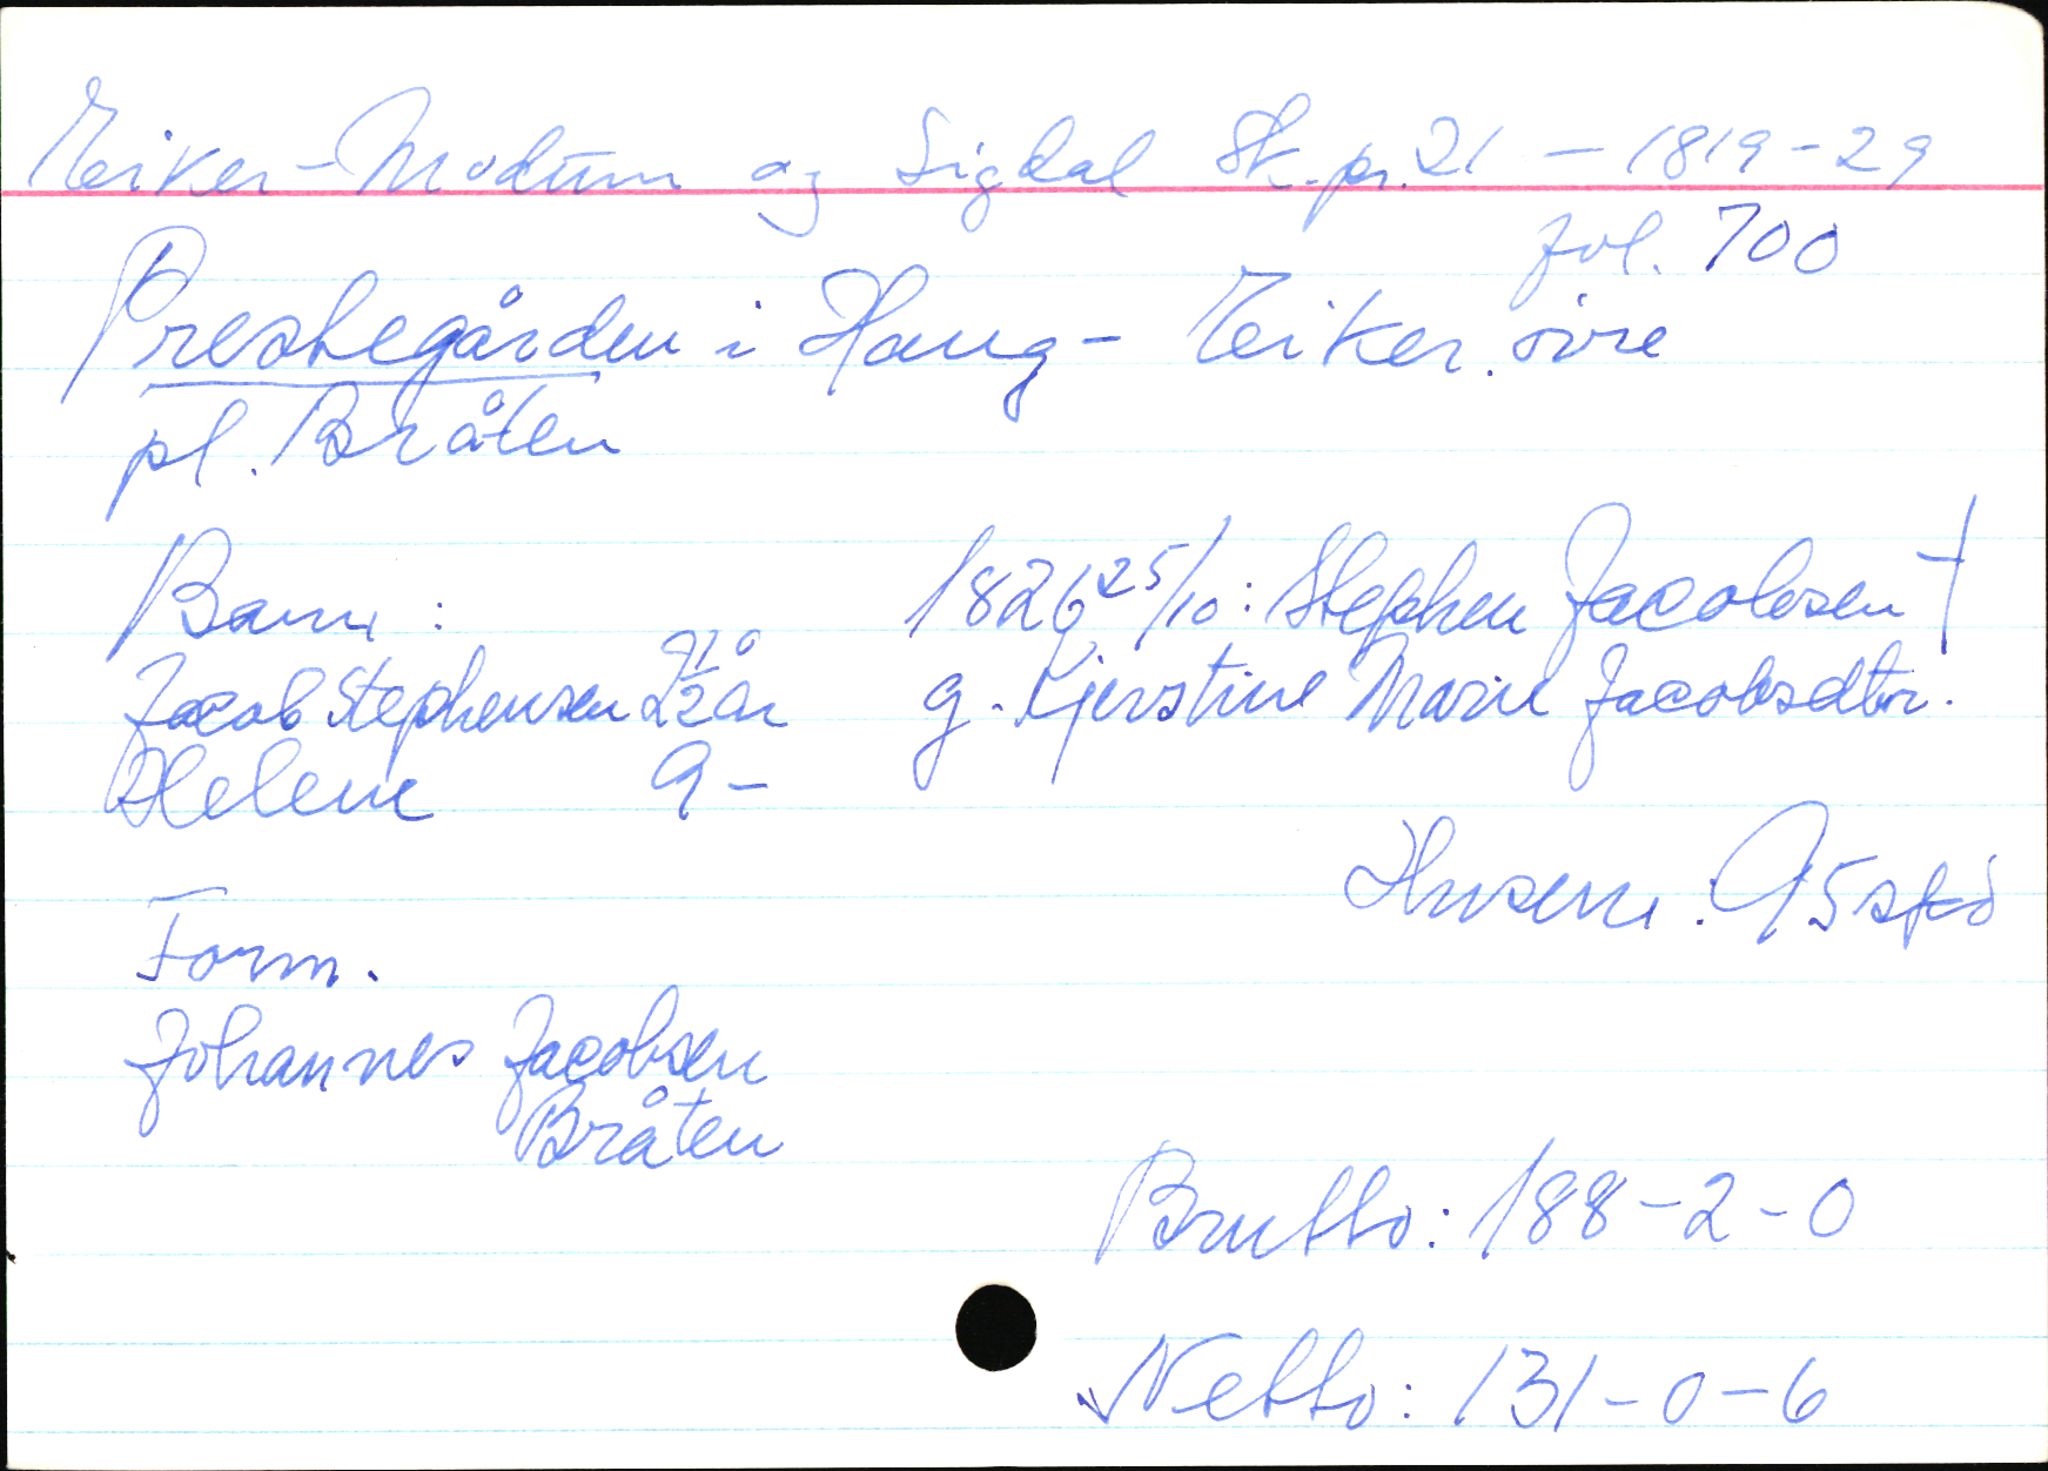 Eiker-Modum og Sigdal Sk.pr. 21 - 1819-29
fol. 700
Prestegården i Haug - Eiker. øvre
pl. Bråten
Barn: 1826 25/10: Stephen Jacobsen †
Jacob Stephensen 2 1/2 år g. Kjerstine Marie Jacobsdtr.
Helene 9 -
Husene: 95 spd
Form.
Johannes Jacobsen
Bråten
Brutto: 188-2-0
Netto: 131-0-6